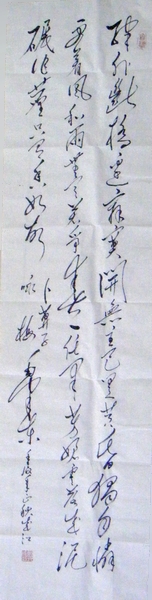 驛外斷橋邊寂寞開無主已是黃昏獨自
更着風和雨無意苦爭春一任羣芳妒零落成泥
碾作塵只有香如故
卜算子
咏梅